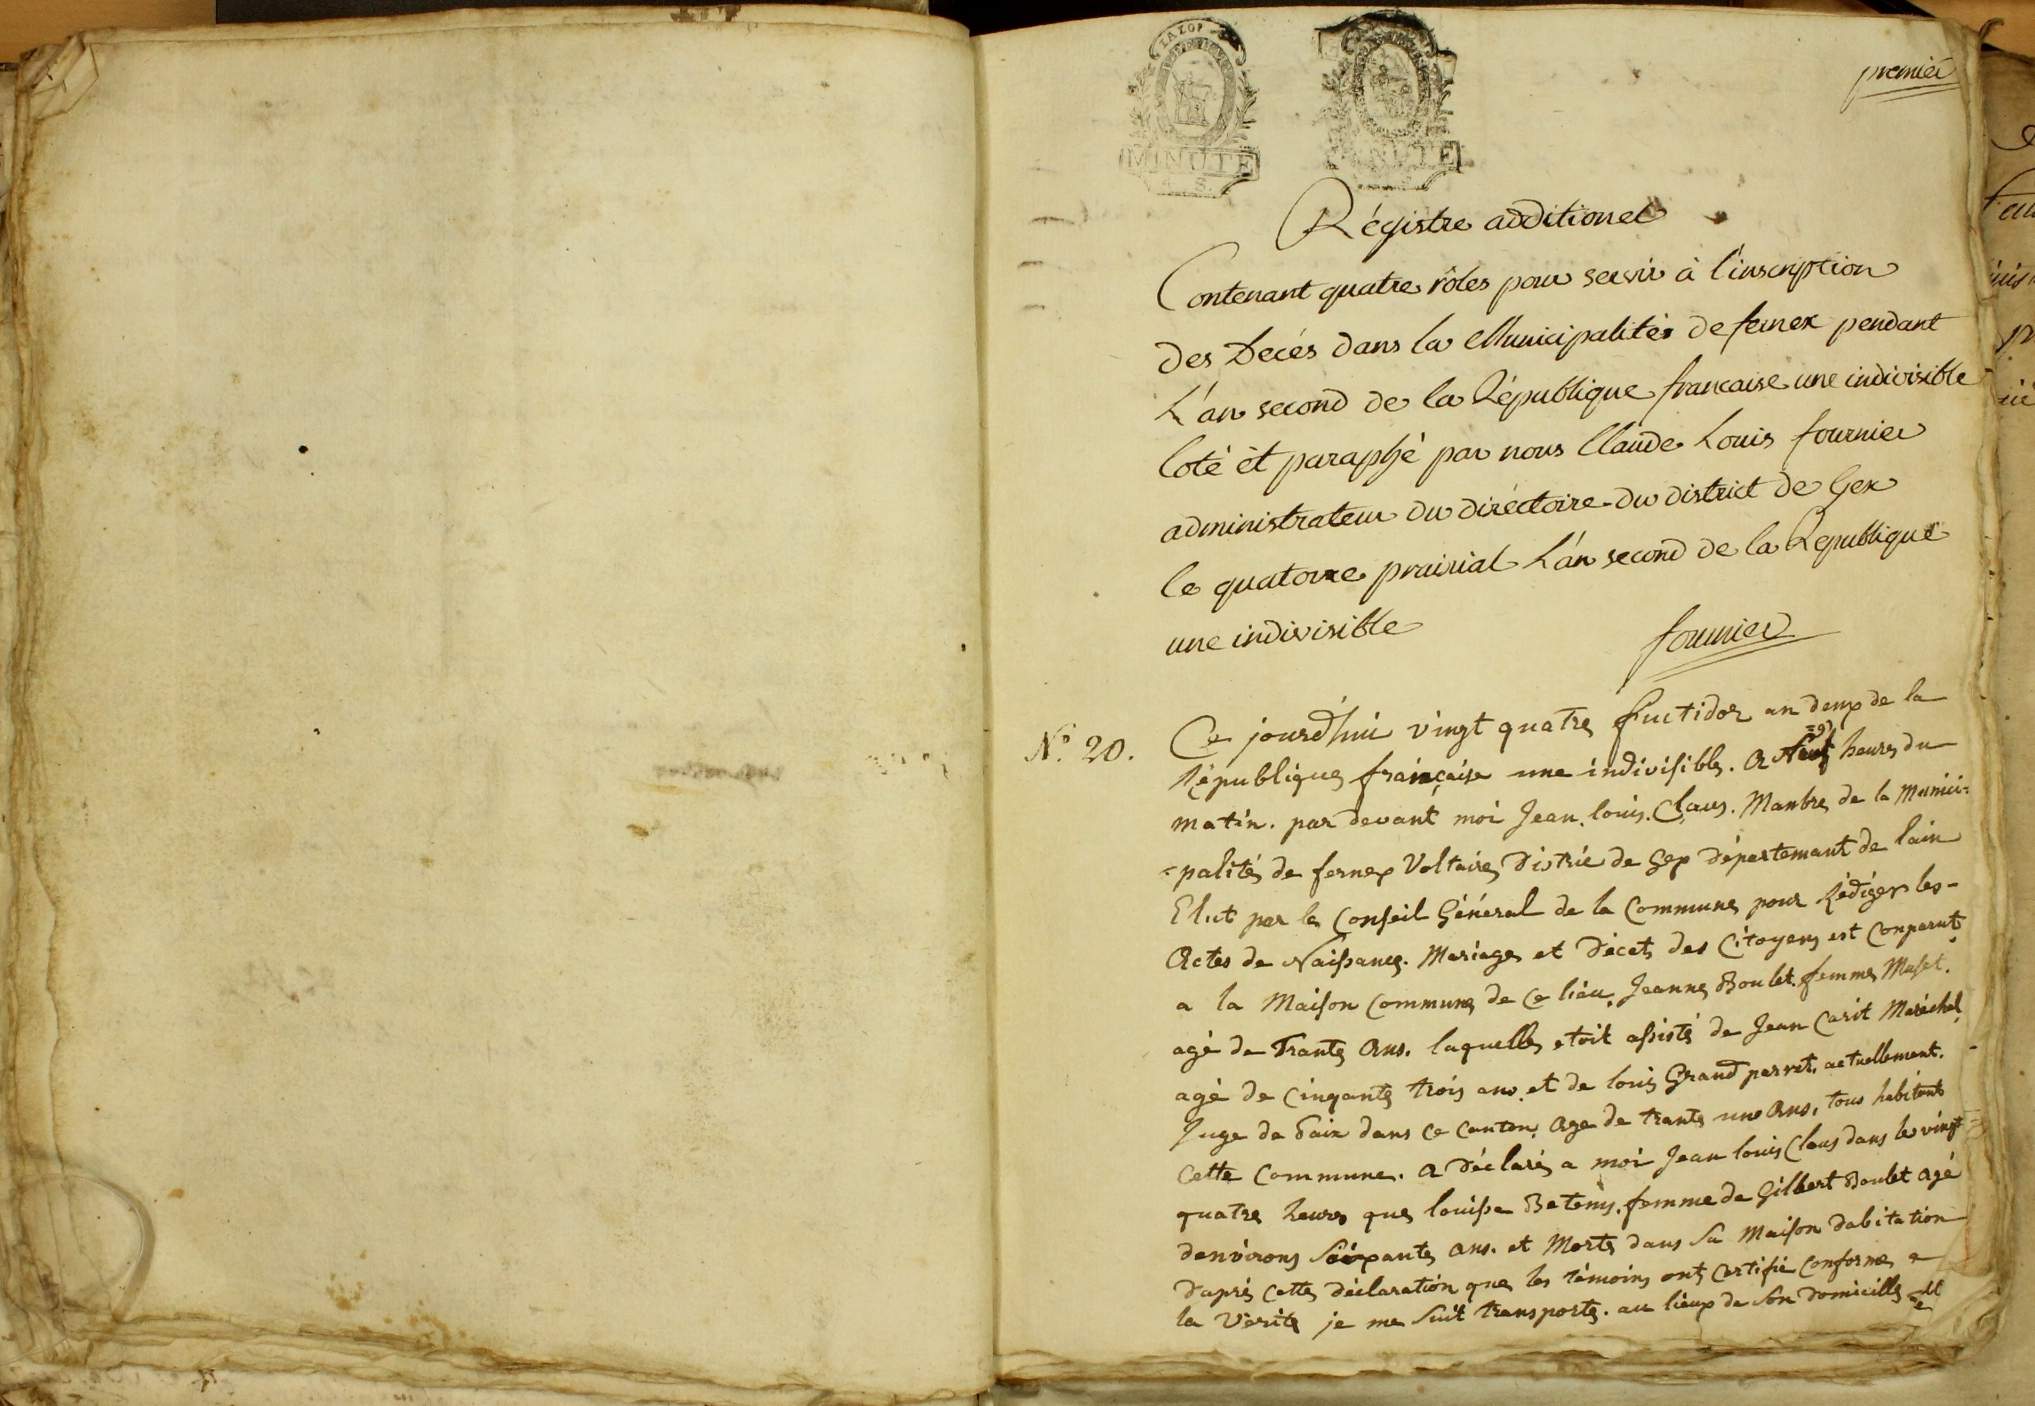 LA LOI
MINUTE
MINUTE
premier
Régistre additionel
Contenant quatre rôles pour servir à l'inscription
des Decés dans la Municipalités de fernex pendant
L'an second de la République francaise une indivisible
Coté èt paraphé par nous Claude Louis fournier
administrateur du diréctoire du district de Gex
le quatorze prairial L'an second de la Republique
une indivisible
fournier
N.º 20.
Ce jourd'hui vingt quatre fructidor an deux de la
République française une indivisible. a Neuf =9) heures du
matin. par devant moi Jean. louis. Claus. Manbre de la Munici=
=palités de fernex Voltaire Distric de Gex Département de lain
Elut par le Conseil Général de la Commune pour Rédiger les-
Actes de Naissance. Mariage et Décet des Citoyens est Comparut
a la Maison Commune de ce lieu, Jeanne Boulet. femme Muset.
agé de Trante Ans. laquelle etoit assisté de Jean Carit Maréchal
agé de Cinqante trois ans. et de louis Grand perret. actuellement.
Juge de Paix dans ce Canton. Age de trante une Ans, tous habitant
Cette Commune. a Déclaré a moi Jean louis Claus dans les vingt
quatre heures que louise Beteny. femme de Gilbert Boulet agé
denvirons Soixante ans. et Morte dans sa Maison dabitation
Daprés cette déclaration que les témoins ont Certifié Conforme a
la Vérité je me suit transporte. au lieux de son Domicille